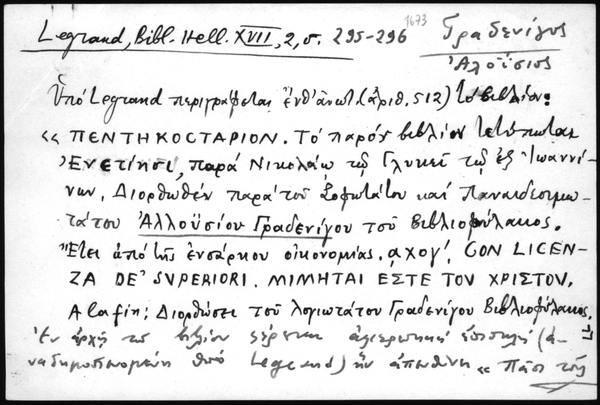 1673
Legrand, Bibl. Hell. XVII, 2, σ. 295-296 Γραδενίγος
Ἀλοΐσιος
Ὑπό Legrand περιγράφεται ἐνθ' ἀνωτ. (ἀριθ. 512) τό βιβλίον:
«ΠΕΝΤΗΚΟΣΤΑΡΙΟΝ. Τό παρόν βιβλίον τετύπωται
Ἐνετίησι, παρά Νικολάῳ τῷ Γλυκεῖ τῷ ἐξ Ἰωαννί-
νων. Διορθωθέν παρά τοῦ Σοφωτάτου καί Παναιδεσιμω-
τάτου Ἀλλοϋσίου Γραδενίγου τοῦ Βιβλιοφύλακος.
Ἔτει ἀπό τῆς ἐνσάρκου οἰκονομίας. αχογ'. CON LICEN-
ZA DE' SVPERIORI. ΜΙΜΗΤΑΙ ΕΣΤΕ ΤΟΥ ΧΡΙΣΤΟΥ.
A la fin: Διορθώσει τοῦ λογιωτάτου Γραδενίγου Βιβλιοφύλακος.
Ἐν ἀρχῇ τοῦ βιβλίου φέρεται ἀφιερωτική ἐπιστολή (ἀ-
ναδημοσιευομένη ὑπό Legrand) ἥν ἀπευθύνει «Πᾶσι τοῖς